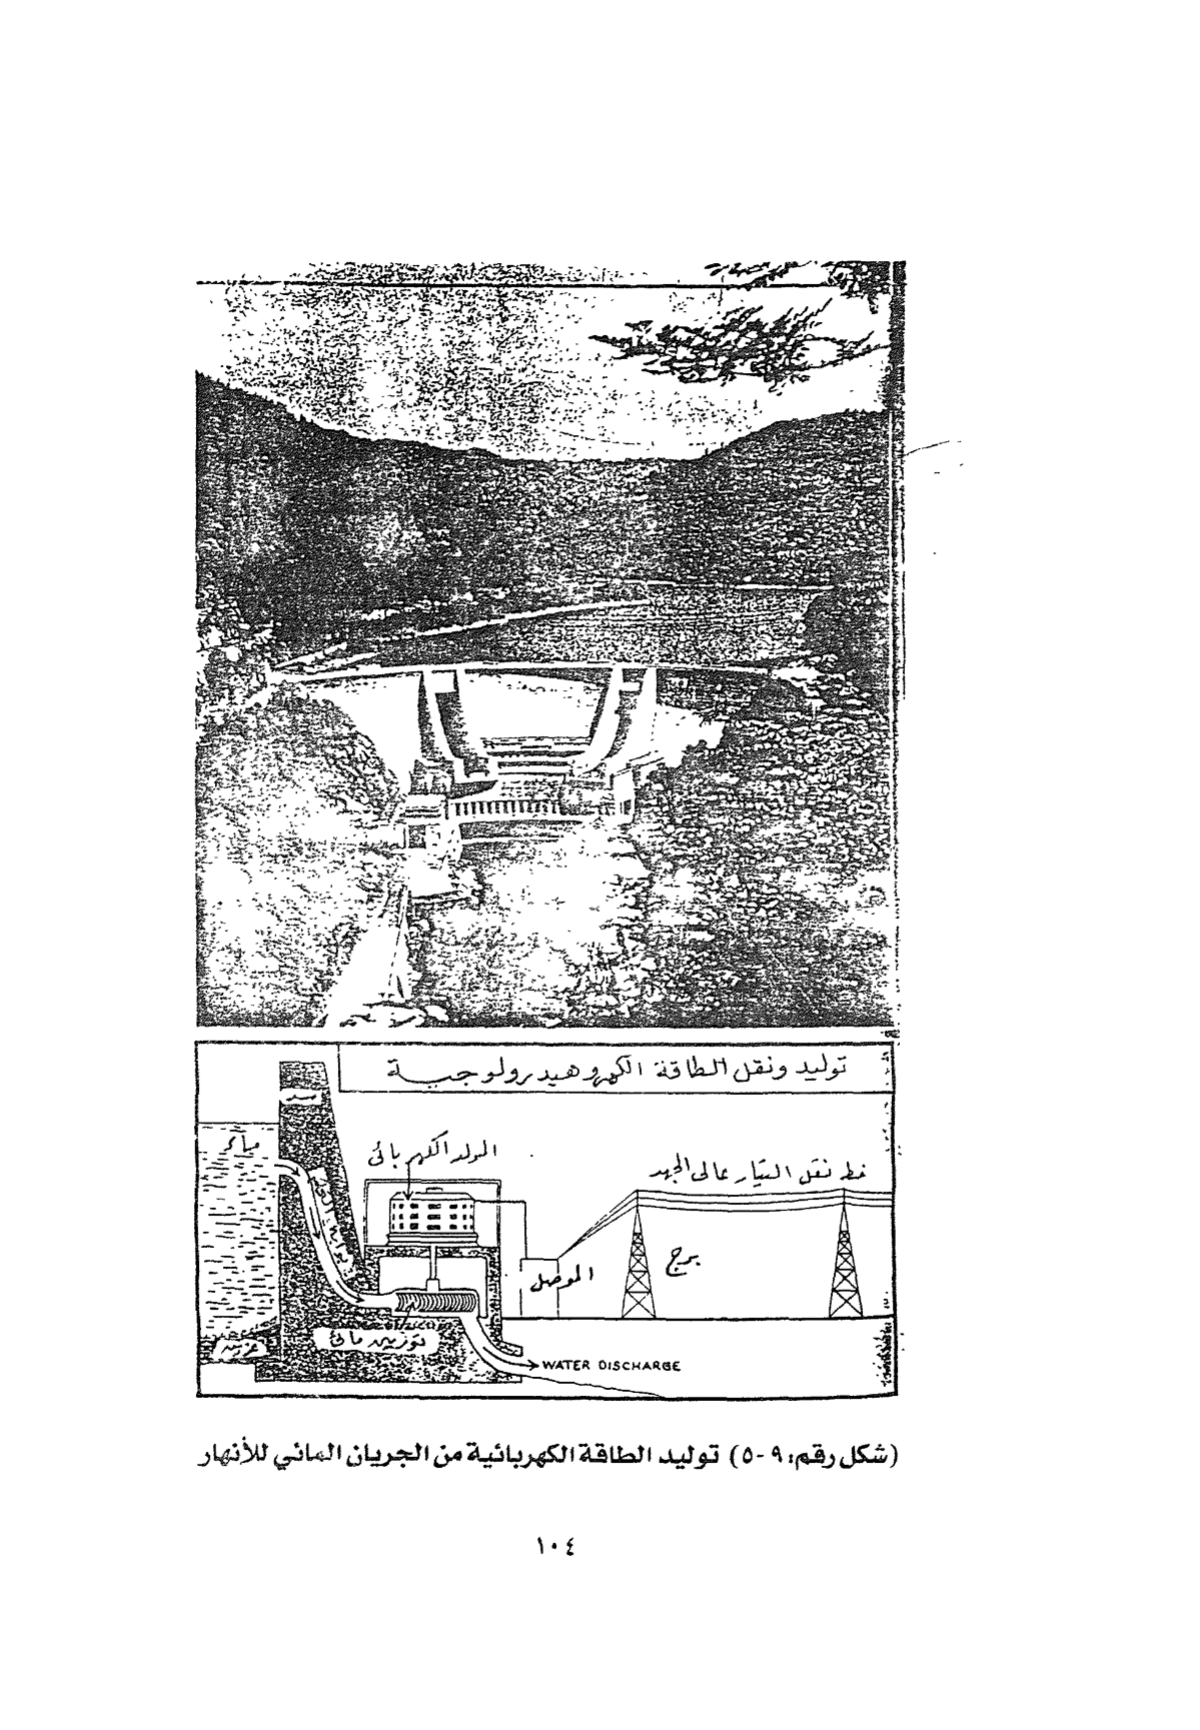 توليد ونقل الطاقة الكهروهيدرولوجية
سد
مياه
المولد الكهربائى
خط نقل التيار عالى الجهد
برج
الموصل
بوابة
توربين مائى
WATER DISCHARGE
(شكل رقم: ٩-٥) توليد الطاقة الكهربائية من الجريان المائي للأنهار
١٠٤